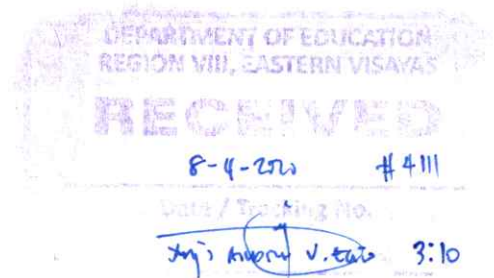 DEPARTMENT OF EDUCATION
REGION VIII, EASTERN VISAYAS
RECEIVED
8-4-2020 #4111
Date / Tracking No.
V. 3:10